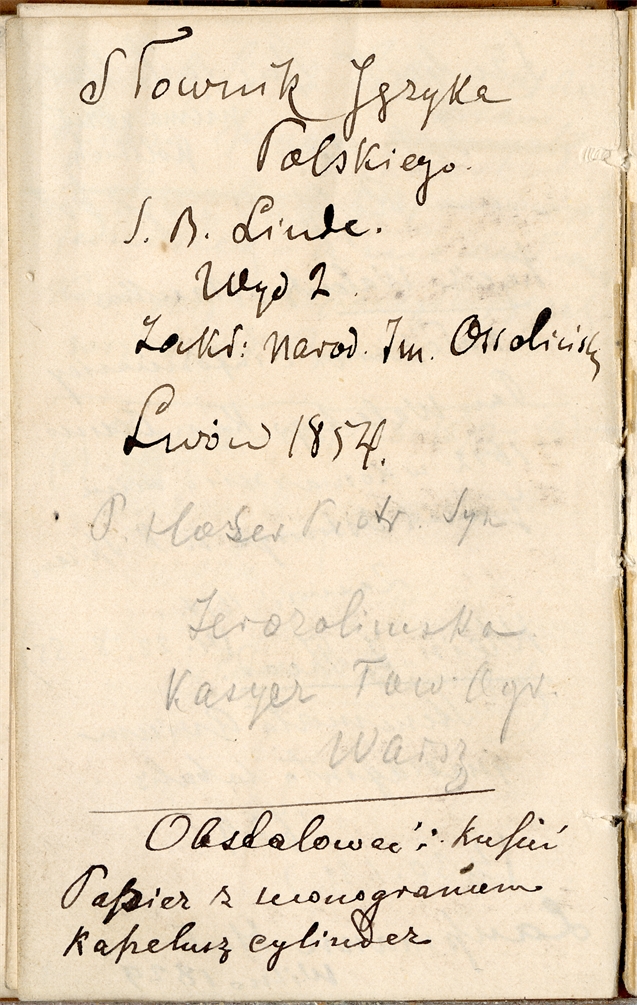 Słownik Języka
Polskiego.
S. B. Linde.
Wyd 2.
Zakł: Narod. Im. Ossolińsk
Lwów 1854.
P. Hoser Piotr. Syn
Jerozolimska
Kasyer Tow. Ogr.
Warsz.
Obstalować i kupić
Papier z monogramem
Kapelusz cylinder